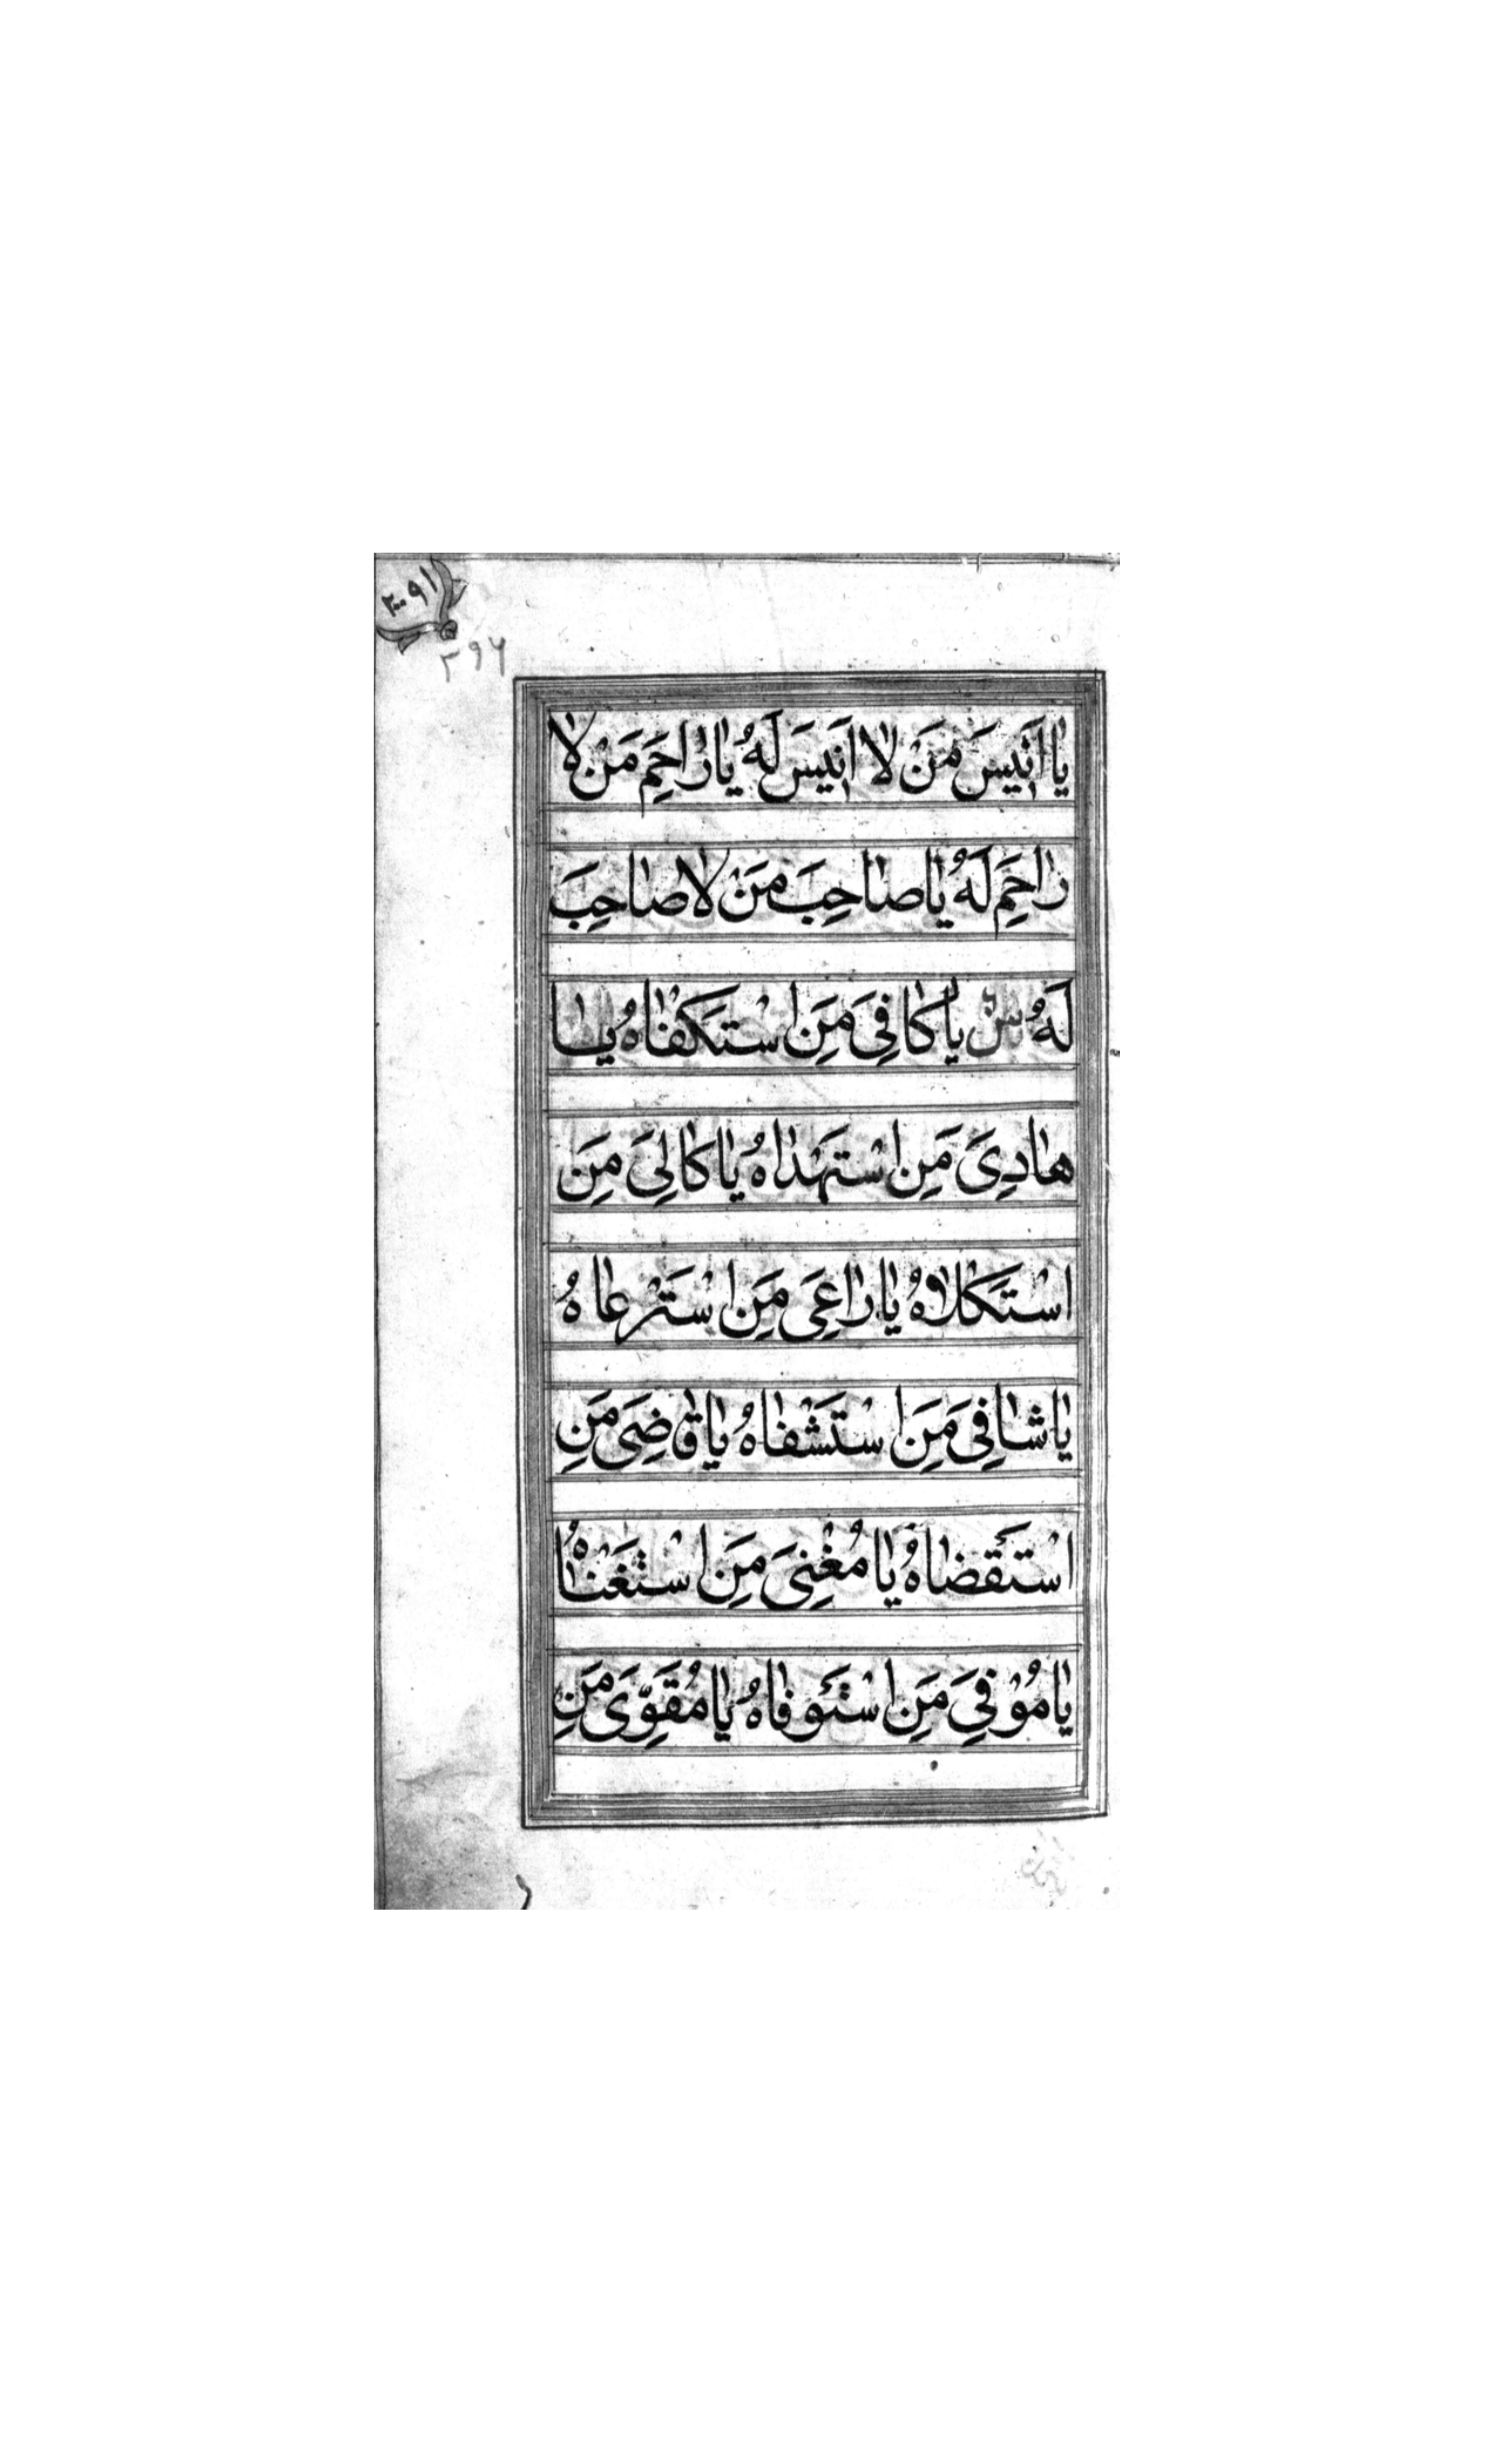 ۳۹۶
يا اَنيسَ مَنْ لا اَنيسَ لَهُ يا راحِمَ مَنْ لا
راحِمَ لَهُ يا صاحِبَ مَنْ لا صاحِبَ
لَهُ يا كافِىَ مَنِ اسْتَكْفاهُ يا
هادِىَ مَنِ اسْتَهْداهُ يا كالِىَ مَنِ
اسْتَكْلاهُ يا راعِىَ مَنِ اسْتَرْعاهُ
يا شافِىَ مَنِ اسْتَشْفاهُ يا قاضِىَ مَنِ
اسْتَقْضاهُ يا مُغْنِىَ مَنِ اسْتَغْناهُ
يا مُوْفِىَ مَنِ اسْتَوْفاهُ يا مُقَوِّىَ مَنِ